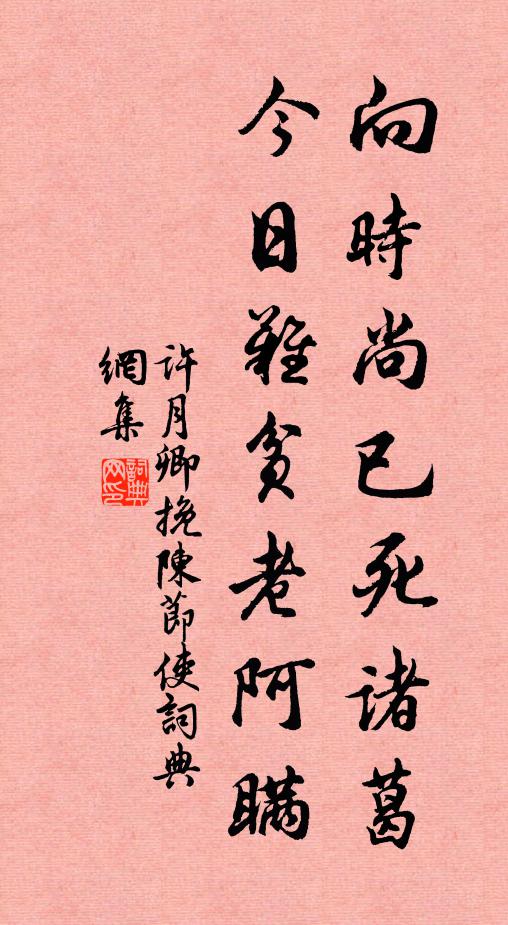 向時尚已死諸葛
今日難貧老阿瞞
許月卿挽陳節使詞典
網集
詞典網印